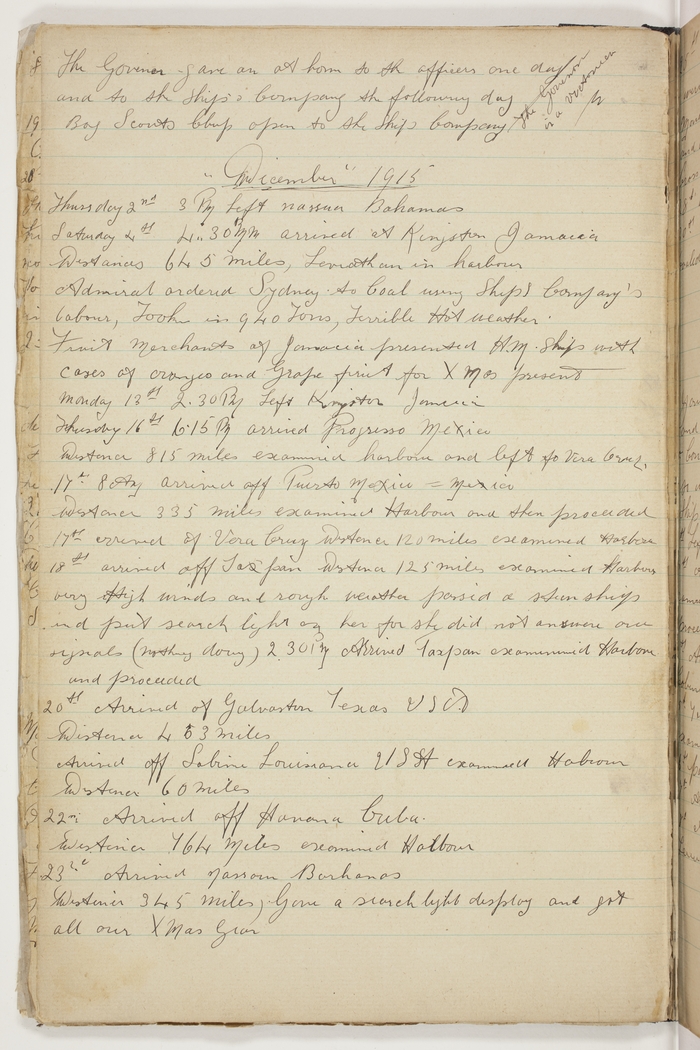 The Govener gave an at hom to the officers one day
and to the Ships's Company the following day
The Govenor
is a Victorian
Boy Scouts Club open to the Ships Company
" Dicember " 1915
Thursday 2nd 3 PM Left nassua Bahamas
Saturday 4st 4.30 PM arrived at Kingston Jamacia
Distances 645 miles, Leviathan in harbour
Admiral ordered Sydney to Coal using Ships Company's
labour, Took in 940 Tons, Terrible Hot weather.
Fruit Merchants of Jamacia presented H.M. Ships with
cases of oranges and Grape fruit for X Mas present
Monday 13st 2.30 PM Left Kingston Jamacia
Thursday 16st 6.15 PM arrived Progresso Mexico
Distance 815 miles examined harbour and left fo Vera Cruz.
17st 8 AM arrived off Puerto Mexico = Mexico
Distance 335 miles examined Harbour and then proceeded
17st arrived of Vera Cruz Distance 120 miles examined Harbour
18st arrived off Taxpan Distance 125 miles examined Harbour
very High winds and rough weather passid a
and put search light on her for she did not answere our
signals (nothing doing) 2.30 PM Arrived Taxpan examined Harbour
and proceeded
20st Arrived of Galvaston Texas USA
Distance 4 3 miles
Arrived off Sabine Louisiana 21 St examined Habour
Distance 60 miles
22n Arrived off Havana Cuba.
Distance 764 Miles examined Halbour
23rd Arrived nassau Barhanas
Distance 345 miles, Gave a search light display and got
all our X Mas Gear